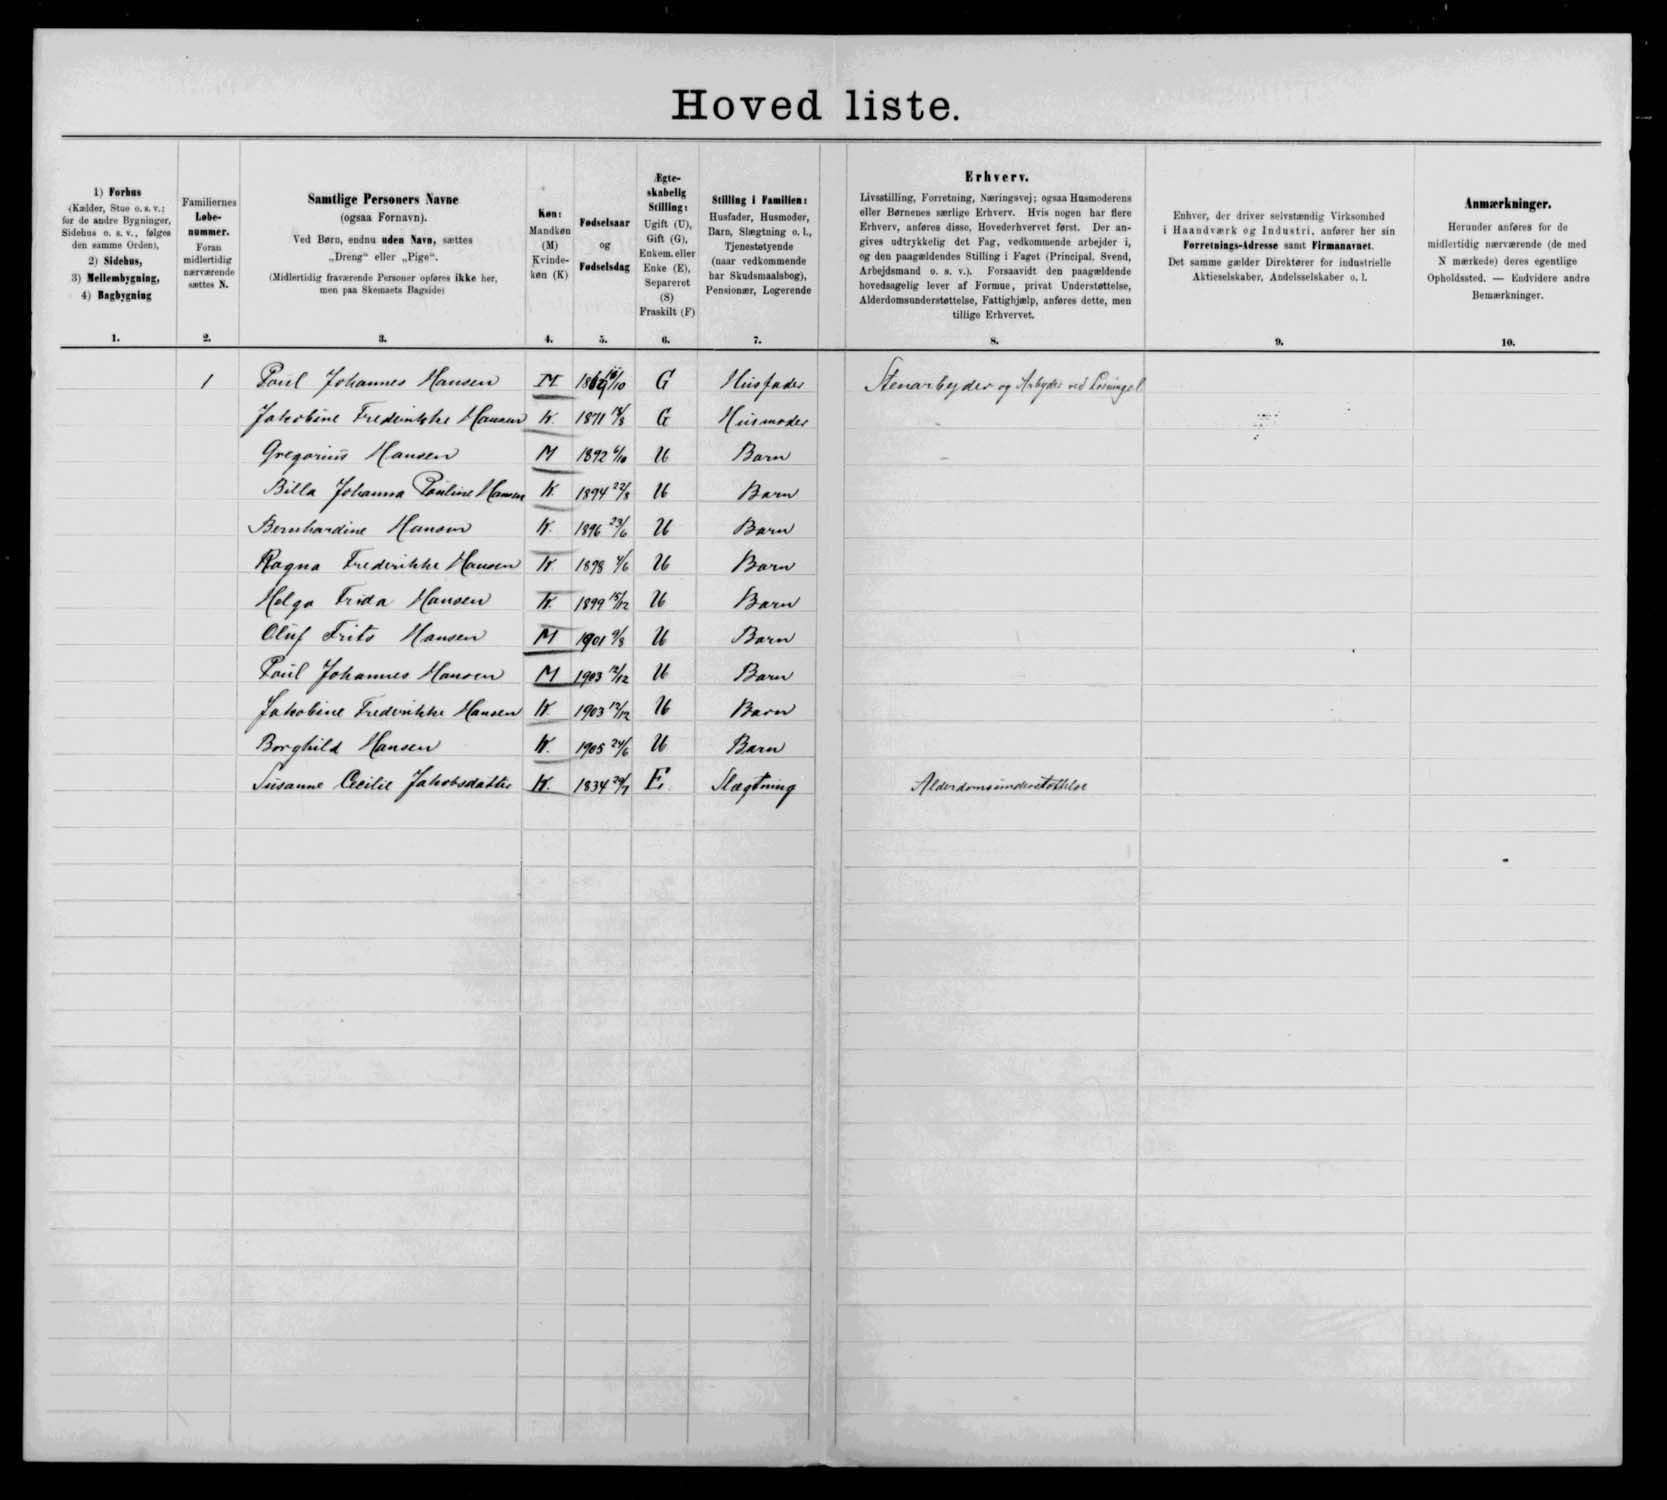 Hoved liste.
1) Forhus
(Kælder, Stue o. s. v.;
for de andre Bygninger,
Sidehus o. s. v., følges
den samme Orden),
2) Sidehus,
3) Mellembygning,
4) Bagbygning
1.
Familiernes
Løbe-
nummer.
Foran
midlertidig
nærværende
sættes N.
2.
Samtlige Personers Navne
(ogsaa Fornavn).
Ved Børn, endnu uden Navn, sættes
„Dreng“ eller „Pige“.
(Midlertidig fraværende Personer opføres ikke her,
men paa Skemaets Bagside)
3.
Køn:
Mandkøn
(M)
Kvinde-
køn (K)
4.
Fødselsaar
og
Fødselsdag
5.
Ægte-
skabelig
Stilling:
Ugift (U),
Gift (G),
Enkem. eller
Enke (E),
Separeret
(S)
Fraskilt (F)
6.
Stilling i Familien:
Husfader, Husmoder,
Barn, Slægtning o. l.,
Tjenestetyende
(naar vedkommende
har Skudsmaalsbog),
Pensionær, Logerende
7.
Erhverv.
Livsstilling, Forretning, Næringsvej; ogsaa Husmoderens
eller Børnenes særlige Erhverv. Hvis nogen har flere
Erhverv, anføres disse, Hovederhvervet først. Der an-
gives udtrykkelig det Fag, vedkommende arbejder i,
og den paagældendes Stilling i Faget (Principal, Svend,
Arbejdsmand o. s. v.). Forsaavidt den paagældende
hovedsagelig lever af Formue, privat Understøttelse,
Alderdomsunderstøttelse, Fattighjælp, anføres dette, men
tillige Erhvervet.
8.
Enhver, der driver selvstændig Virksomhed
i Haandværk og Industri, anfører her sin
Forretnings-Adresse samt Firmanavnet.
Det samme gælder Direktører for industrielle
Aktieselskaber, Andelsselskaber o. l.
9.
Anmærkninger.
Herunder anføres for de
midlertidig nærværende (de med
N mærkede) deres egentlige
Opholdssted. — Endvidere andre
Bemærkninger.
10.
1 Poul Johannes Hansen M 1869 /10 G Husfader Stenarbejder og Arbejder ved
Jakobine Frederikke Hansen K. 1871 /8 G Husmoder
Gregorius Hansen M 1892 6/10 U Barn
Billa Johanna Pouline Hansen K. 1894 22/8 U Barn
Bernhardine Hansen K. 1896 23/6 U Barn
Ragna Frederikke Hansen K. 1898 /6 U Barn
Helga Frida Hansen K. 1899 15/12 U Barn
Oluf Frits Hansen M 1901 9/8 U Barn
Poul Johannes Hansen M 1903 12/12 U Barn
Jakobine Frederikke Hansen K. 1903 12/12 U Barn
Borghild Hansen K. 1905 24/6 U Barn
Susanne Cecilie Jakobsdatter K. 1834 29/7 E. Slægtning Alderdomsunderstøttelse